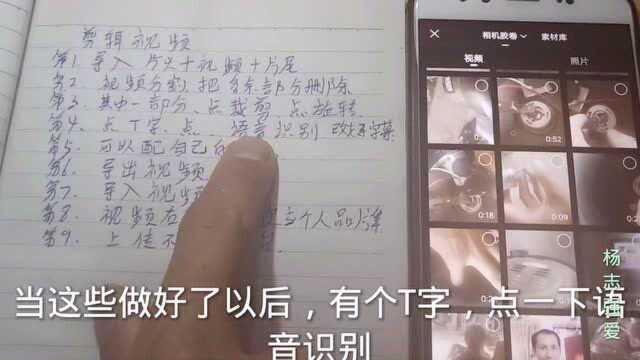 剪辑视频
第1. 导入 片头+视频+片尾
第2. 视频分割, 把多余部分删除
第3. 其中一部分、点裁剪 点旋转
第4. 点T字、点 语音识别 改好字幕
第5. 可以配自己的
第6. 导出视频
第7. 导入视频
第8. 视频右 个人品牌
第9. 上传
相机胶卷 素材库
视频 照片
0:52
0:18 0:09
杨志强爱
当这些做好了以后，有个T字，点一下语
音识别